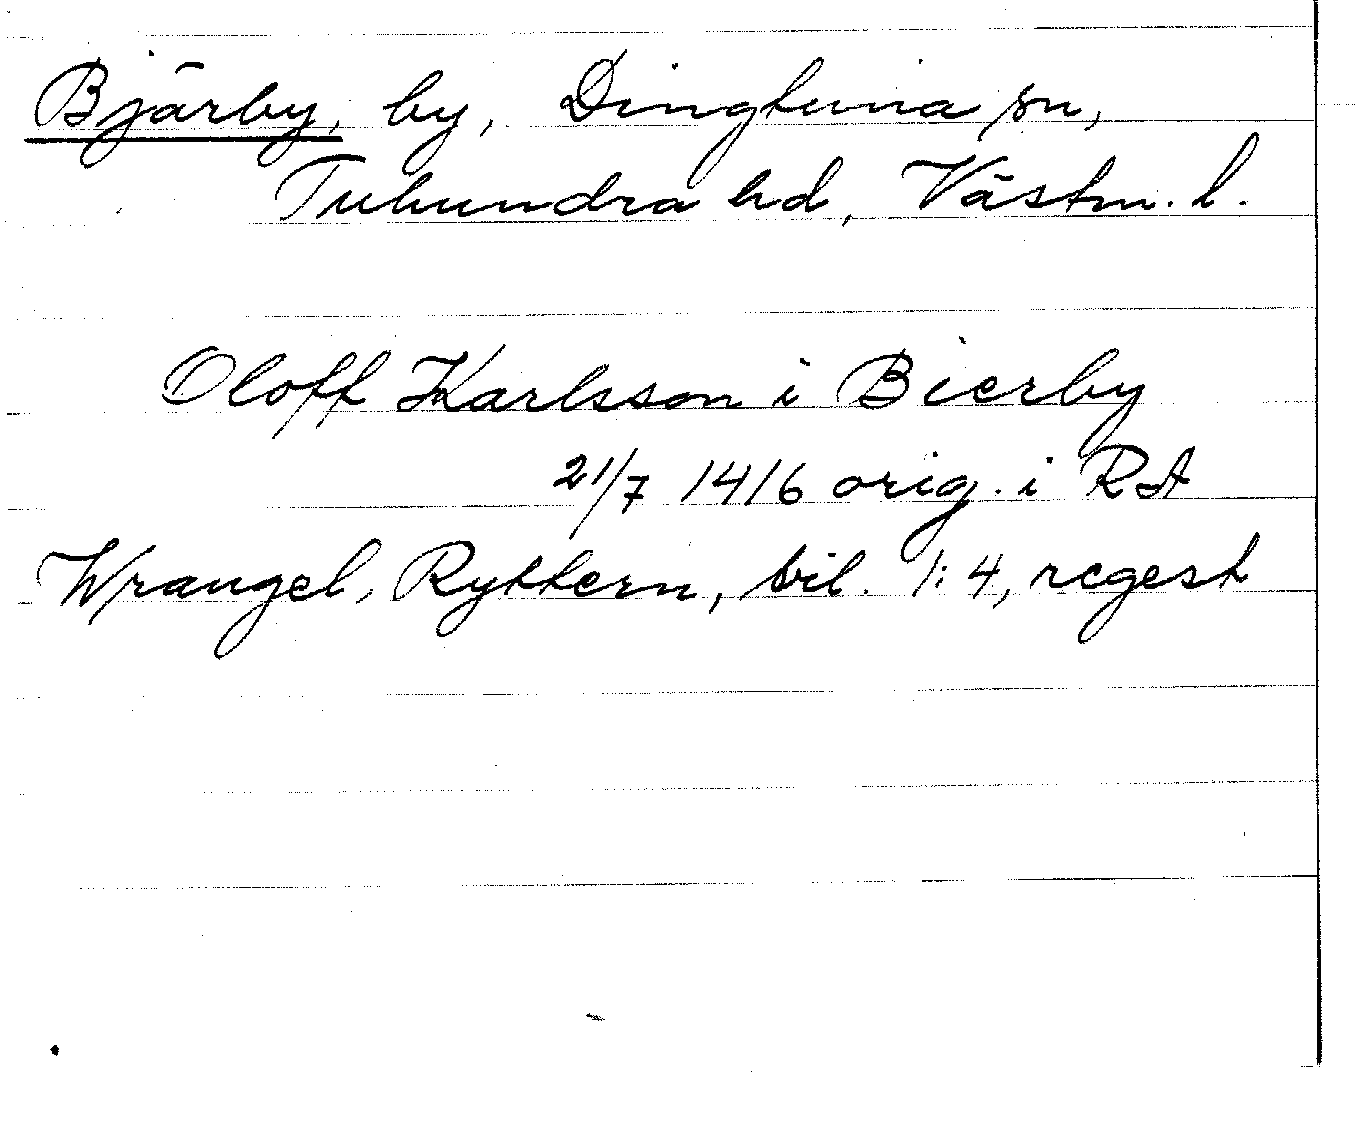 Bjärby, by, Dingtuna sn,
Tuhundra hd, Västm. l.
Oloff Karlsson i Bierby
21/7 1416 orig. i RA
Wrangel, Ryttern, bil. 1:4, regest